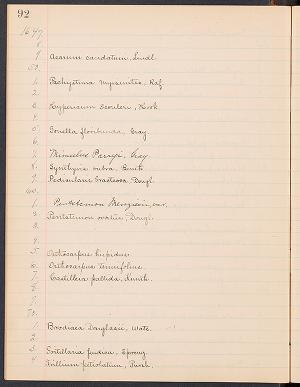 92
1647
8
9 Asarum caudatum, Lindl.
50.
1. Pachystima myrsinites, Raf.
2.
3. Hypericum Scouleri, Hook
4.
5. Gonella floribunda, Gray.
6.
7. Mimulus Gray
8. Synthyris rubra, Benth
9. Pedicularis bracteosa, Benth.
60.
1. Pentstemon Menziesii, var.
2. Pentstemon ovatus, Dougl.
3.
4.
5. Orthocarpus hispidus
6. Orthocarpus tenuifolius
7. Castilleia pallida, Kunth.
8.
9.
70.
1. Brodiaea Douglasii, Wats.
2.
3. Fritillaria pudica, Spreng.
4 Trillium petiolatum, Pursh.